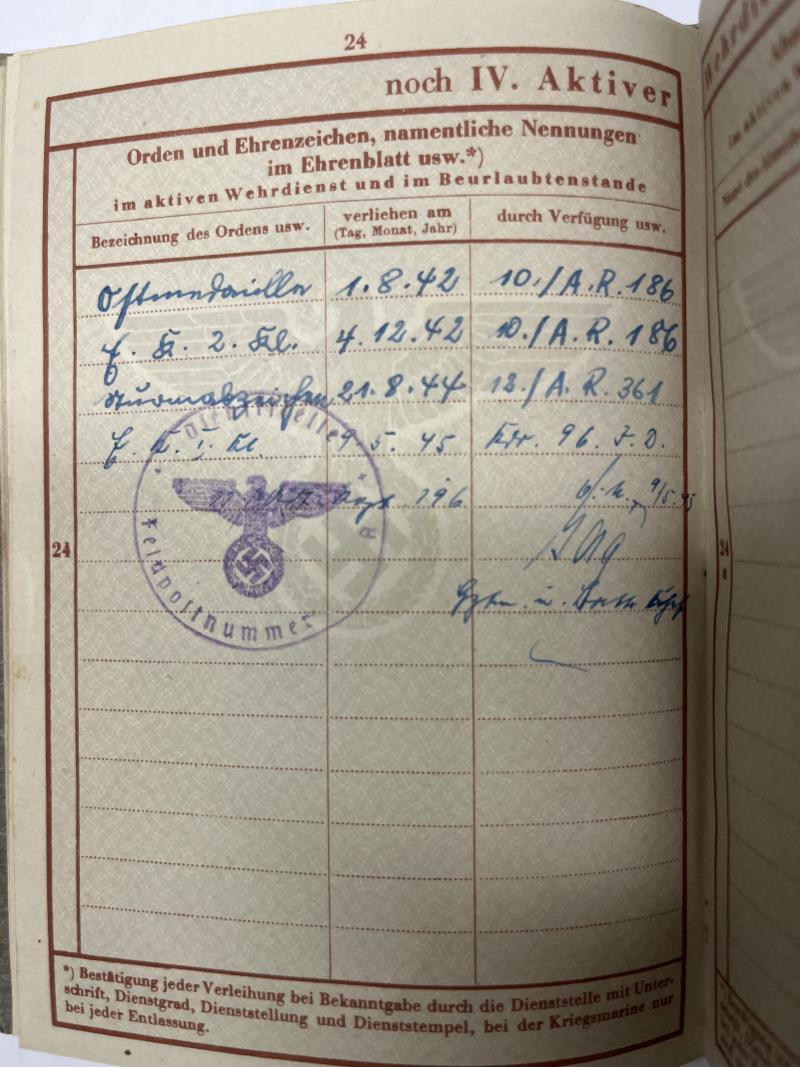 24
noch IV. Aktiver
Orden und Ehrenzeichen, namentliche Nennungen
im Ehrenblatt usw.*)
im aktiven Wehrdienst und im Beurlaubtenstande
Bezeichnung des Ordens usw. verliehen am (Tag, Monat, Jahr) durch Verfügung usw.
Ostmedaille 1.8.42 10./A.R. 186
E. K. 2. Kl. 4.12.42 10./A.R. 186
Sturmabzeichen 21.8.44 12./A.R. 361
E. K. I. Kl. 9 5. 45 Kdr. 96. J.D.
196 9/5.45
Hptm. u.
Dienststelle
Feldpostnummer
24
24
*) Bestätigung jeder Verleihung bei Bekanntgabe durch die Dienststelle mit Unter-
schrift, Dienstgrad, Dienststellung und Dienststempel, bei der Kriegsmarine nur
bei jeder Entlassung.